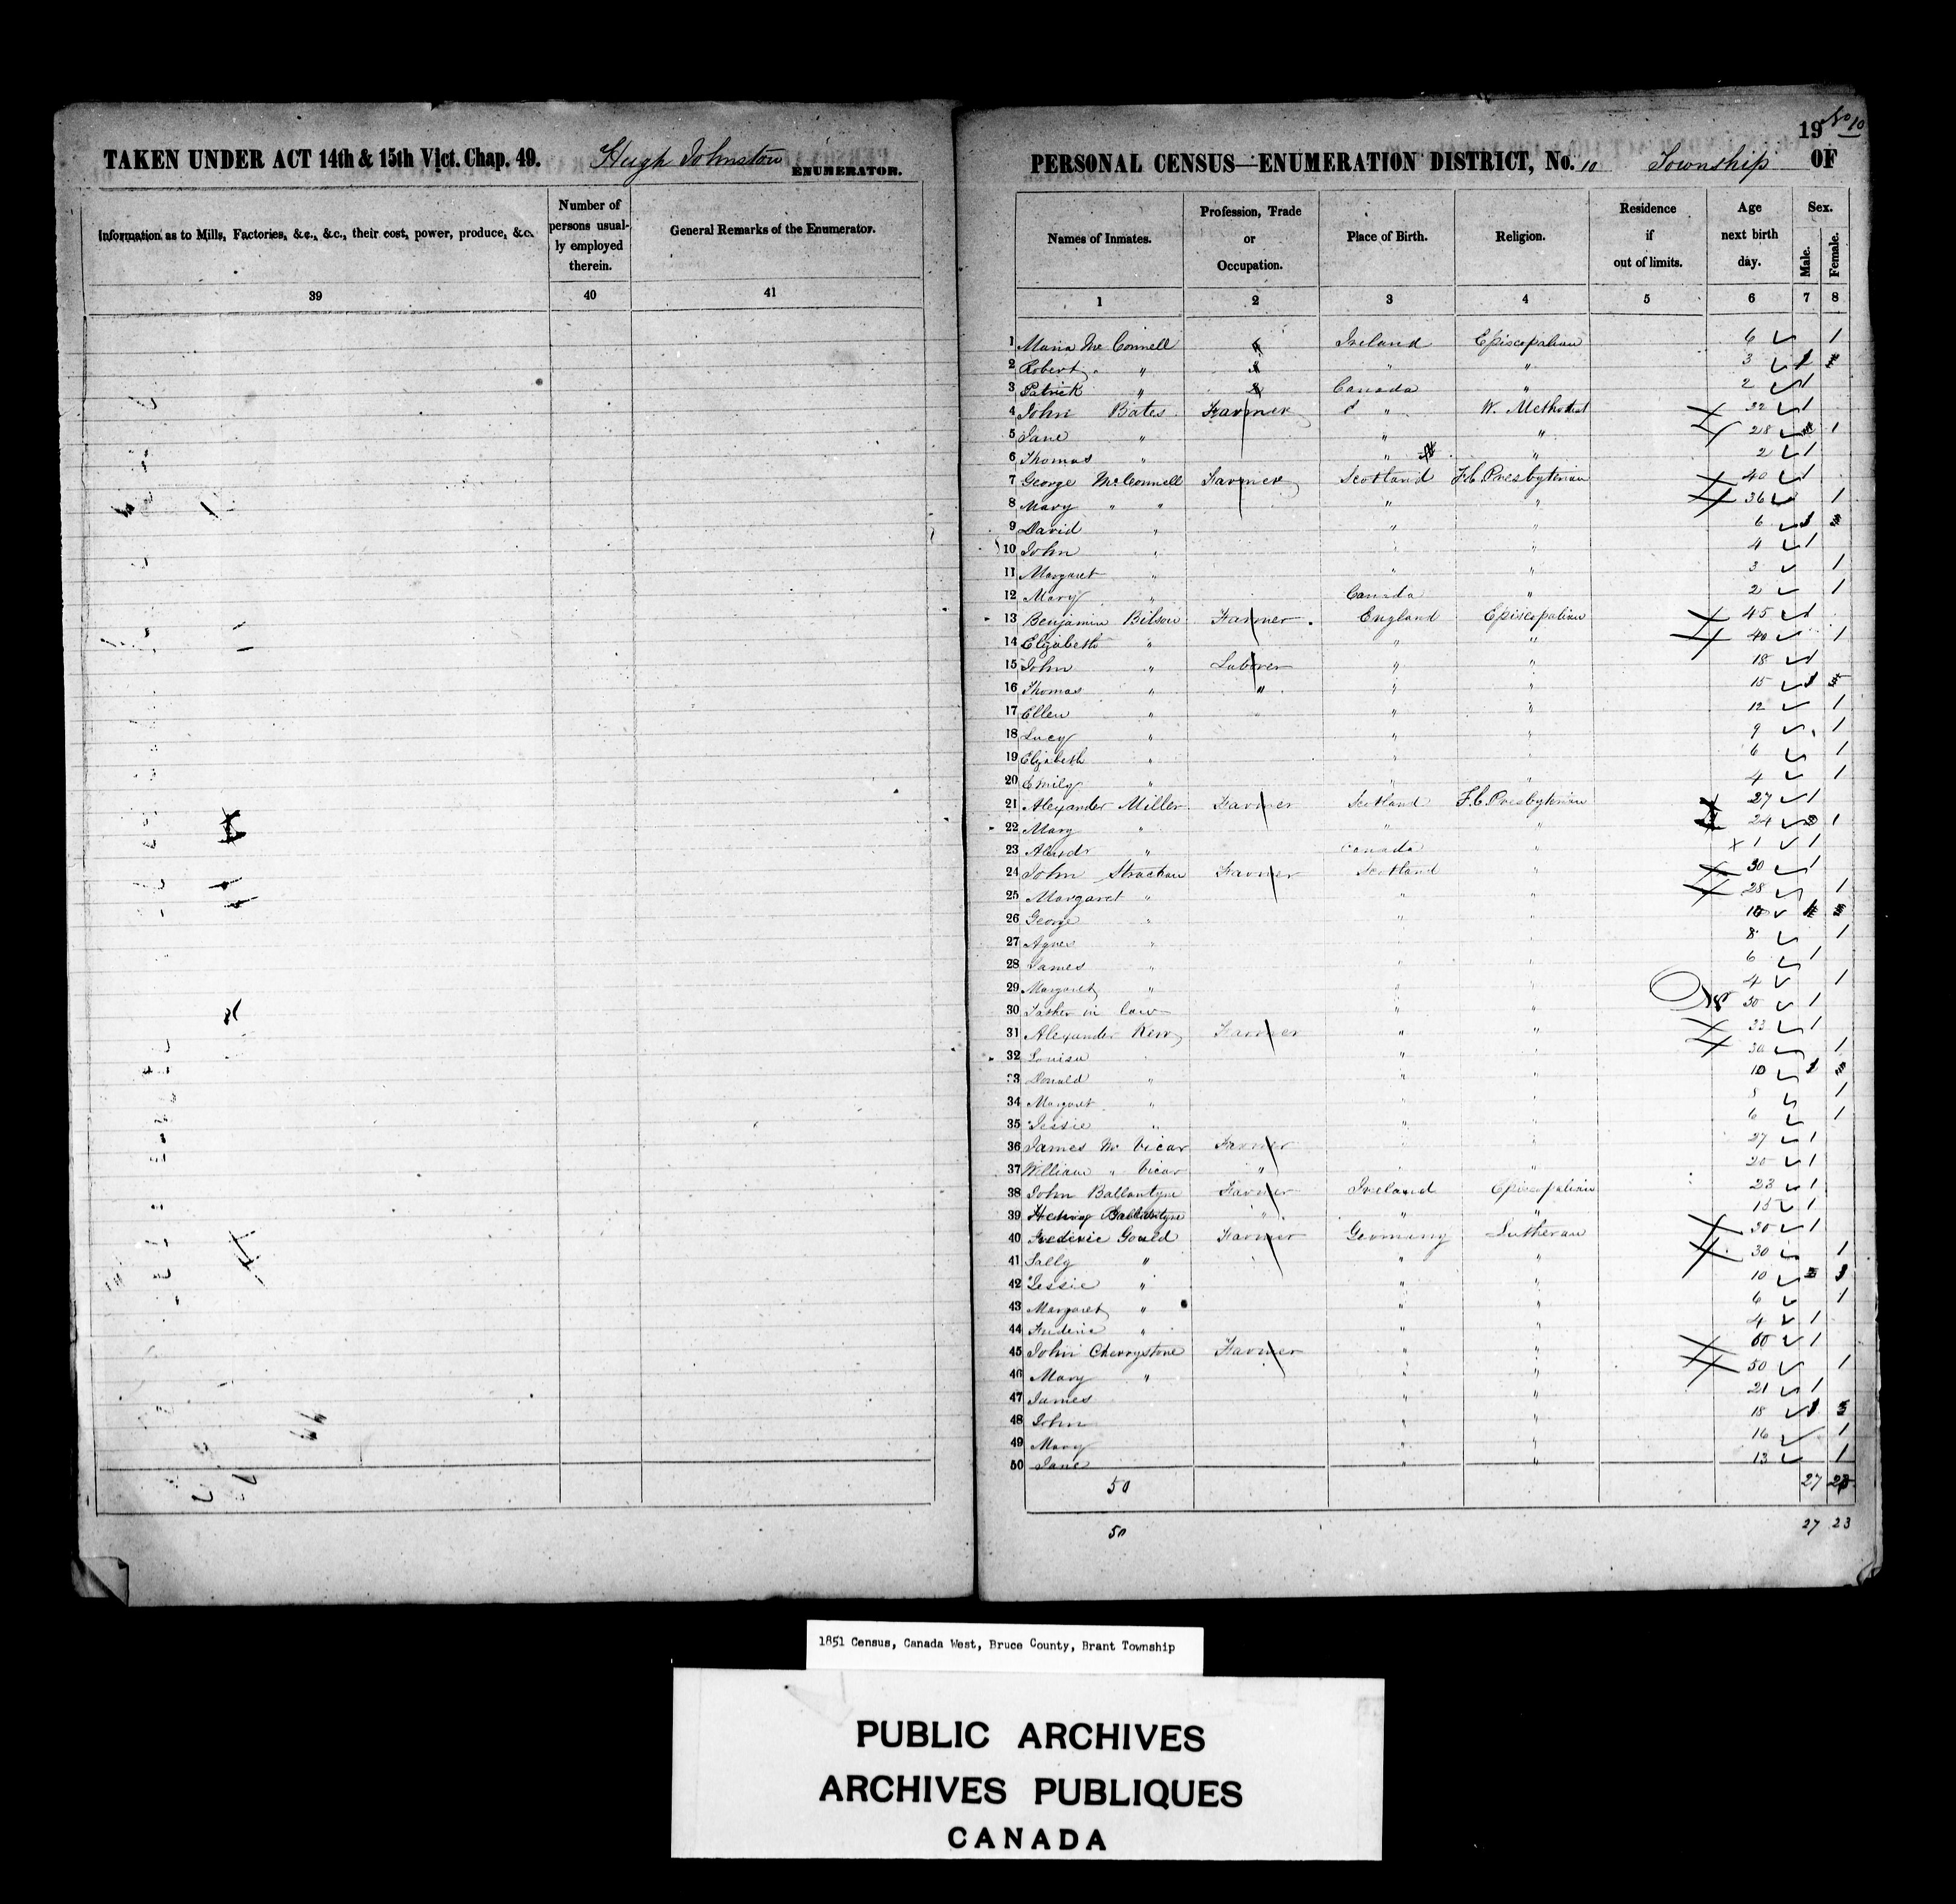 TAKEN UNDER ACT 14th & 15th Vict. Chap. 49. Hugh Johnston ENUMERATOR.
Information as to Mills, Factories, &c., &c., their cost, power, produce, &c.
Number of persons usually employed therein.
General Remarks of the Enumerator.
39 40 41
19 No 10
PERSONAL CENSUS—ENUMERATION DISTRICT, No. 10 Township OF
Names of Inmates. Profession, Trade or Occupation. Place of Birth. Religion. Residence if out of limits. Age next birth day. Sex. Male. Female.
1 2 3 4 5 6 7 8
1 Maria Mc Connell Ireland Episcopalian 6 1
2 Robert " " " 3 1
3 Patrick " Canada " 2 1
4 John Bates Farmer " W. Methodist 32 1
5 Jane " " " 28 1
6 Thomas " " " 2 1
7 George McConnell Farmer Scotland F.C. Presbyterian 40 1
8 Mary " " " " 36 1
9 David " " " 6 1
10 John " " " 4 1
11 Margaret " " " 3 1
12 Mary " Canada " 2 1
13 Benjamin Bilson Farmer England Episcopalian 45 1
14 Elizabeth " " " 40 1
15 John " Laborer " " 18 1
16 Thomas " " " " 15 1
17 Ellen " " " 12 1
18 Lucy " " " 9 1
19 Elizabeth " " " 6 1
20 Emily " " " 4 1
21 Alexander Miller Farmer Scotland F.C. Presbyterian 27 1
22 Mary " " " 24 1
23 Alexdr " Canada " 1 1
24 John Strachan Farmer Scotland " 30 1
25 Margaret " " " 28 1
26 George " " " 10
27 Agnes " " " 8 1
28 James " " " 6 1
29 Margaret " " " 4 1
30 Father in law " " 50 1
31 Alexander Kerr Farmer " " 33 1
32 Louisa " " " 30 1
33 Donald " " " 10 1
34 Margaret " " " 8 1
35 Jessie " " " 6 1
36 James Mc Vicar Farmer " " 27 1
37 William " Vicar " " " 20 1
38 John Ballantyne Farmer Ireland Episcopalian 23 1
39 Henry Ballantyne " " " 15 1
40 Frederic Gould Farmer Germany Lutheran 30 1
41 Sally " " " 30 1
42 Jessie " " " 10 1
43 Margaret " " " 6 1
44 Frederic " " " 4 1
45 John Cherrystone Farmer " " 60 1
46 Mary " " " 50 1
47 James " " 21 1
48 John " " 18 1
49 Mary " " 16 1
50 Jane " " 13 1
50 27 23
50 27 23
1851 Census, Canada West, Bruce County, Brant Township
PUBLIC ARCHIVES
ARCHIVES PUBLIQUES
CANADA